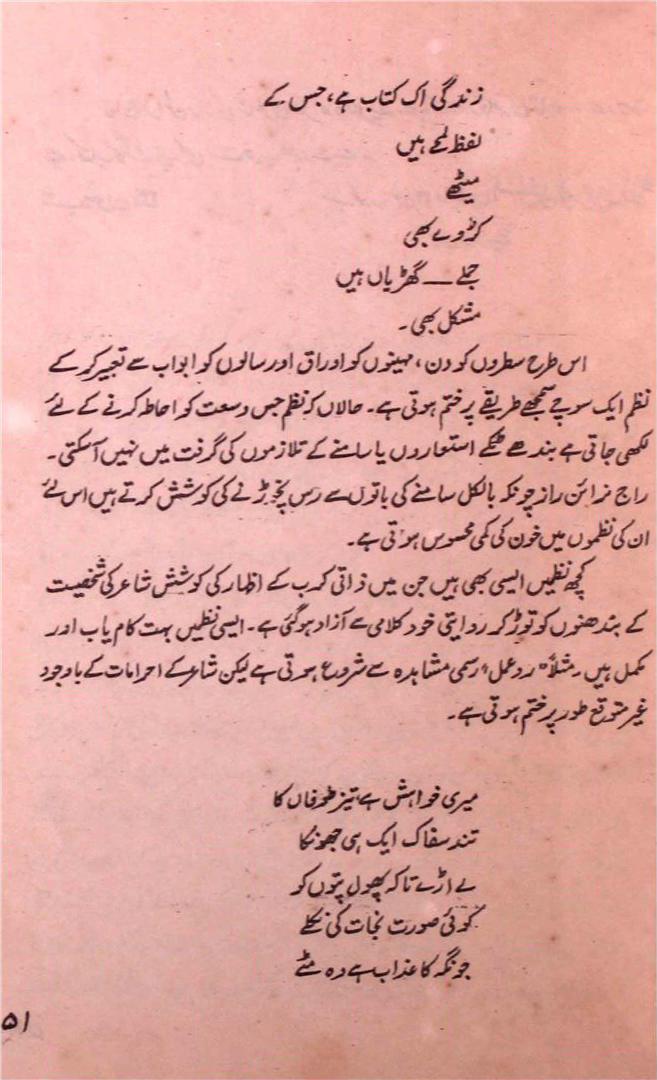 زندگی اک کتاب ہے، جس کے
لفظ لمحے ہیں
میٹھے
کڑوے بھی
جملے — گھڑیاں ہیں
مشکل بھی۔
اس طرح سطروں کو دن، مہینوں کو اوراق اور سالوں کو ابواب سے تعبیر کر کے
نظم ایک سوچے سمجھے طریقے پر ختم ہوتی ہے۔ حالاں کہ نظم جس وسعت کو احاطہ کرنے کے لئے
لکھی جاتی ہے بندھے ٹکے استعاروں یا سامنے کے تلازموں کی گرفت میں نہیں آ سکتی۔
راج نرائن راز چونکہ بالکل سامنے کی باتوں سے رس نچوڑنے کی کوشش کرتے ہیں اس لئے
ان کی نظموں میں خون کی کمی محسوس ہوتی ہے۔
کچھ نظمیں ایسی بھی ہیں جن میں ذاتی کرب کے اظہار کی کوشش شاعر کی شخصیت
کے بندھنوں کو توڑ کر روایتی خود کلامی سے آزاد ہو گئی ہے۔ ایسی نظمیں بہت کام یاب اور
مکمل ہیں۔ مثلاً "ردعمل" رسمی مشاہدہ سے شروع ہوتی ہے لیکن شاعر کے احرامات کے باوجود
غیر متوقع طور پر ختم ہوتی ہے۔
میری خواہش ہے تیز طوفاں کا
تند سفاک ایک ہی جھونکا
لے اڑے تاکہ پھول پتوں کو
کوئی صورت نجات کی نکلے
جو نگہ کا عذاب ہے وہ مٹے
۵۱